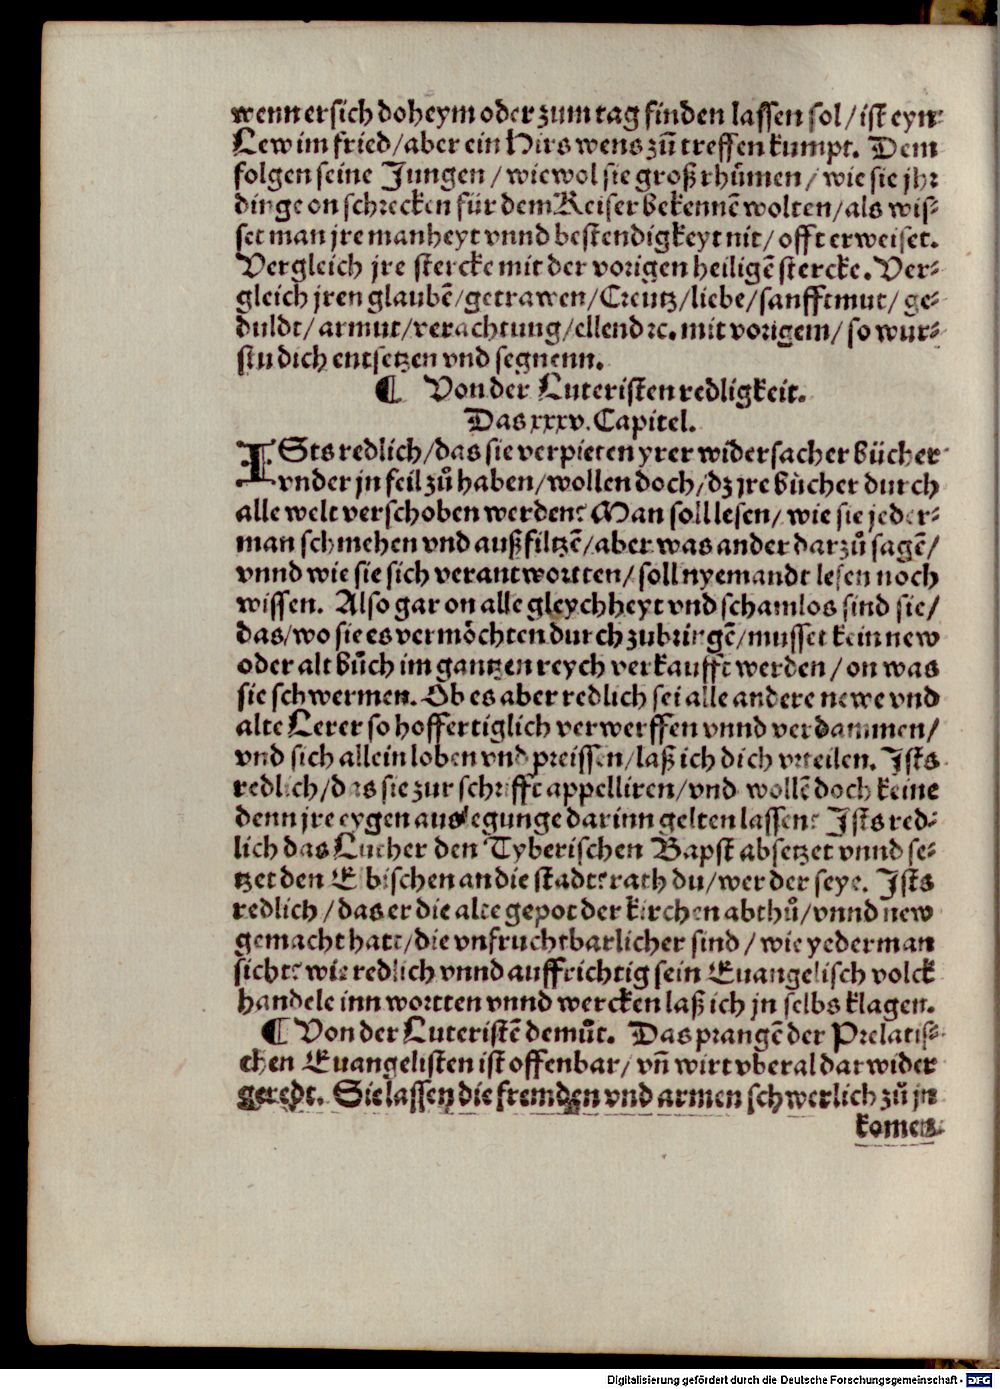 wenn er sich doheym oder zum tag finden lassen sol / ist eyn
Lew im fried / aber ein Hirs wens zů treffen kumpt. Dem
folgen seine Jungen / wiewol sie groß rhůmen / wie sie jhr
dinge on schrecken für dem Keiser bekennē wolten / als wis-
set man jre manheyt vnnd bestendigkeyt nit / offt erweiset.
Vergleich jre stercke mit der vorigen heiligē stercke. Ver-
gleich jren glaubē / getrawen / Creutz / liebe / sanfftmut / ge-
duldt / armut / verachtung / ellend ꝛc. mit vorigem / so wur-
stu dich entsetzen vnd segnenn.
¶ Von der Luteristen redligkeit.
Das xxxv. Capitel.
ISts redlich / das sie verpieten yrer widersacher bücher
vnder jn feil zů haben / wollen doch / dz jre bücher durch
alle welt verschoben werden? Man soll lesen / wie sie jeder-
man schmehen vnd außfiltzē / aber was ander darzů sagē /
vnnd wie sie sich verantwortten / soll nyemandt lesen noch
wissen. Also gar on alle gleychheyt vnd schamlos sind sie /
das / wo sie es vermöchten durch zubringē / musset kein new
oder alt bůch im gantzen reych verkaufft werden / on was
sie schwermen. Ob es aber redlich sei alle andere newe vnd
alte Lerer so hoffertiglich verwerffen vnnd verdammen /
vnd sich allein loben vnd preissen / laß ich dich vrteilen. Ists
redlich / das sie zur schrifft appelliren / vnd wollē doch keine
denn jre eygen auslegunge darinn gelten lassen? Ists red-
lich das Luther den Tyberischen Bapst absetzet vnnd se-
tzet den Elbischen an die stadt? rath du / wer der seye. Ists
redlich / das er die alte gepot der kirchen abthů / vnnd new
gemacht hatt / die vnfruchtbarlicher sind / wie yederman
sicht? wie redlich vnnd auffrichtig sein Euangelisch volck
handele inn wortten vnnd wercken laß ich jn selbs klagen.
¶ Von der Luteristē demůt. Das prangē der Prelatis-
chen Euangelisten ist offenbar / vn̄ wirt vberal darwider
geredt. Sie lassen die fremden vnd armen schwerlich zů jn
komen
Digitalisierung gefördert durch die Deutsche Forschungsgemeinschaft - DFG